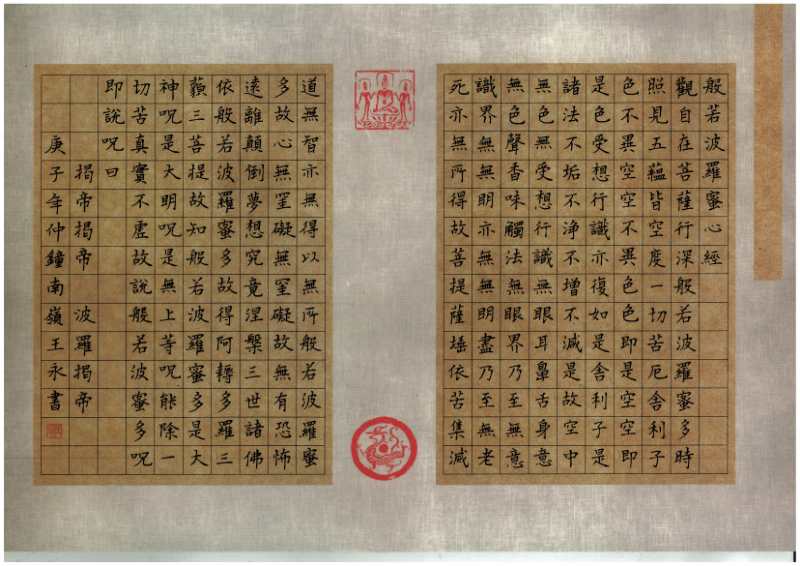 般若波羅蜜心經
觀自在菩薩行深般若波羅蜜多時
照見五蘊皆空度一切苦厄舍利子
色不異空空不異色色即是空空即
是色受想行識亦復如是舍利子是
諸法不垢不淨不增不減是故空中
無色無受想行識無眼耳鼻舌身意
無色聲香味觸法無眼界乃至無意
識界無無明亦無無明盡乃至無老
死亦無所得故菩提薩埵依苦集滅
道無智亦無得以無所般若波羅蜜
多故心無罣礙無罣礙故無有恐怖
遠離顛倒夢想究竟涅槃三世諸佛
依般若波羅蜜多故得阿耨多羅三
藐三菩提故知般若波羅蜜多是大
神呪是大明呪是無上等呪能除一
切苦真實不虛故說般若波蜜多呪
即說呪曰
揭帝揭帝 波羅揭帝
庚子年仲鐘南嶺王永書